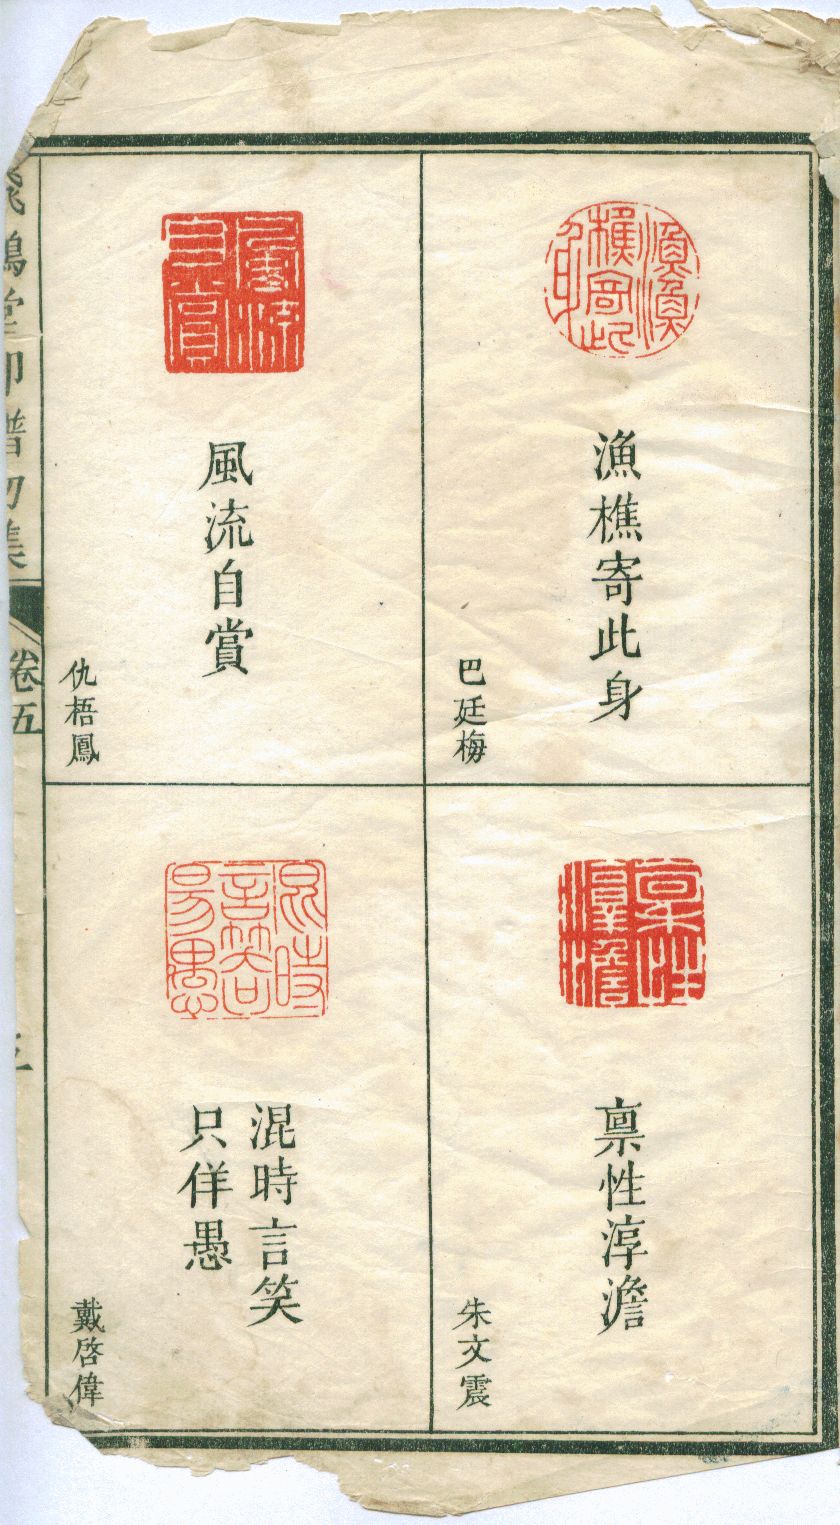 漁樵寄此身
巴廷梅
風流自賞
仇梧鳳
禀性淳澹
朱文震
混時言笑
只佯愚
戴啓偉
飛鴻堂印譜初集
卷五